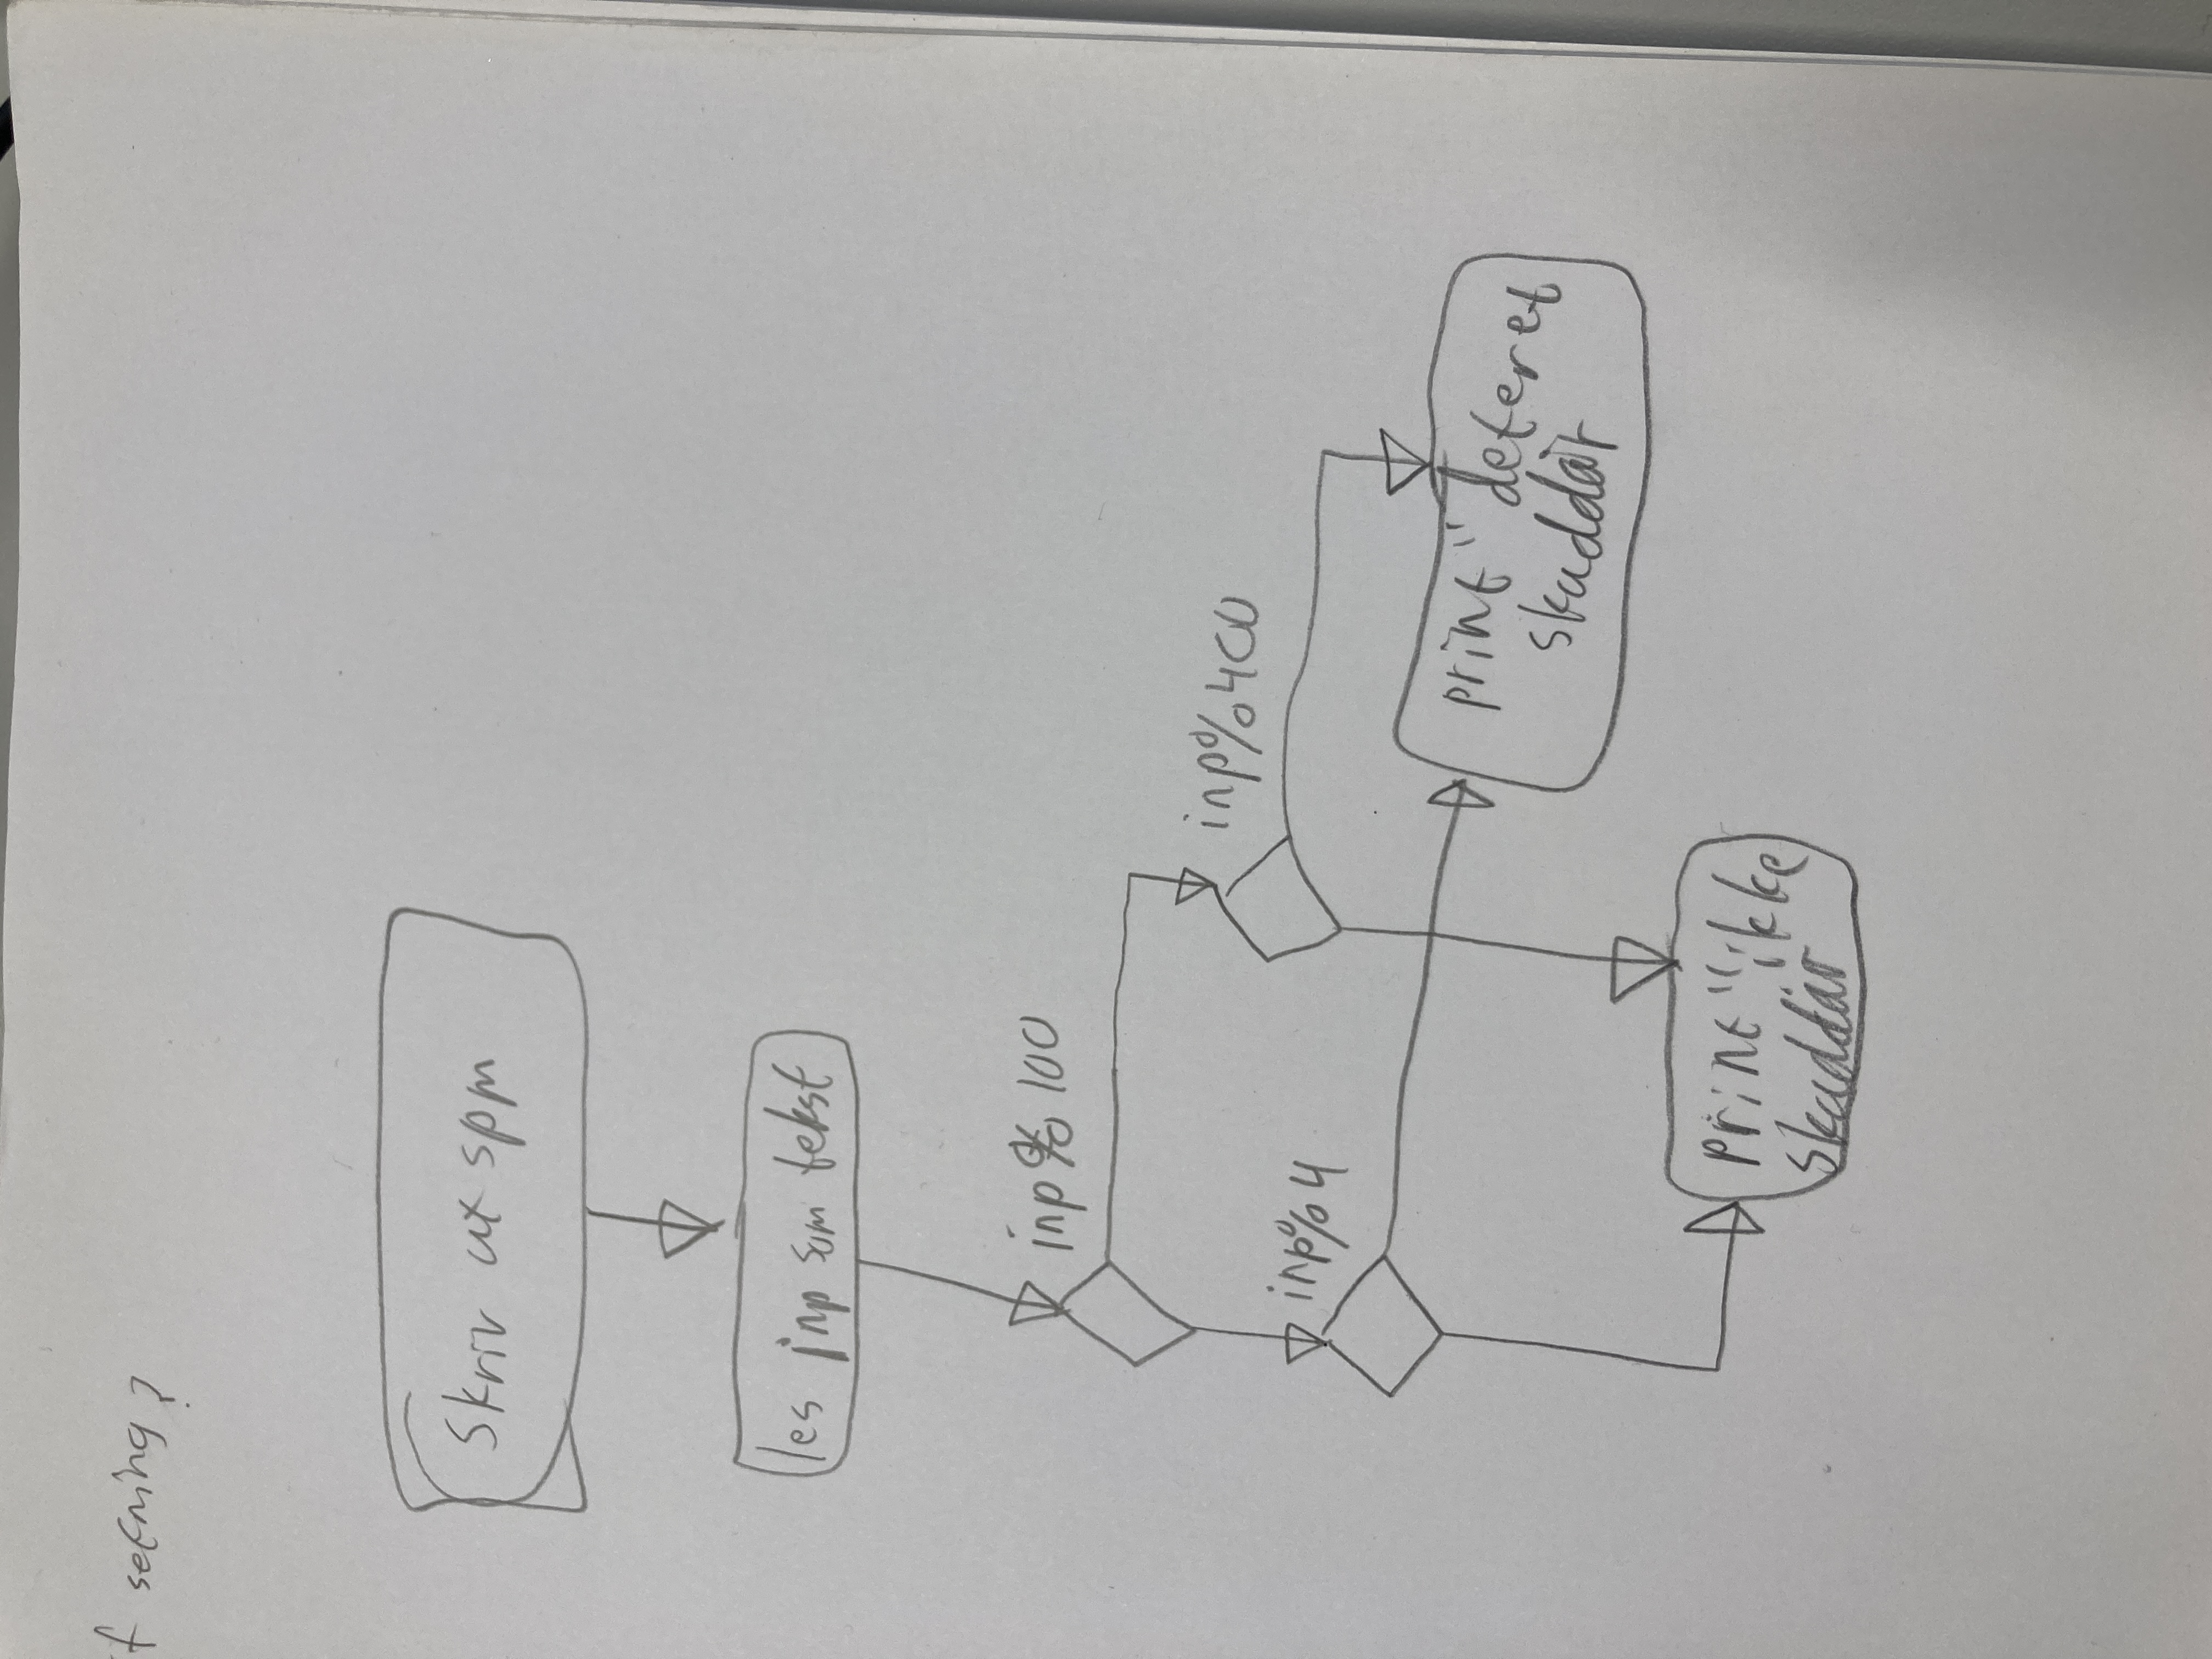 f setning?
Skriv ut spm
les inp som tekst
inp % 100
inp%400
inp%4
print "det er et
skuddår
print "ikke
skuddår